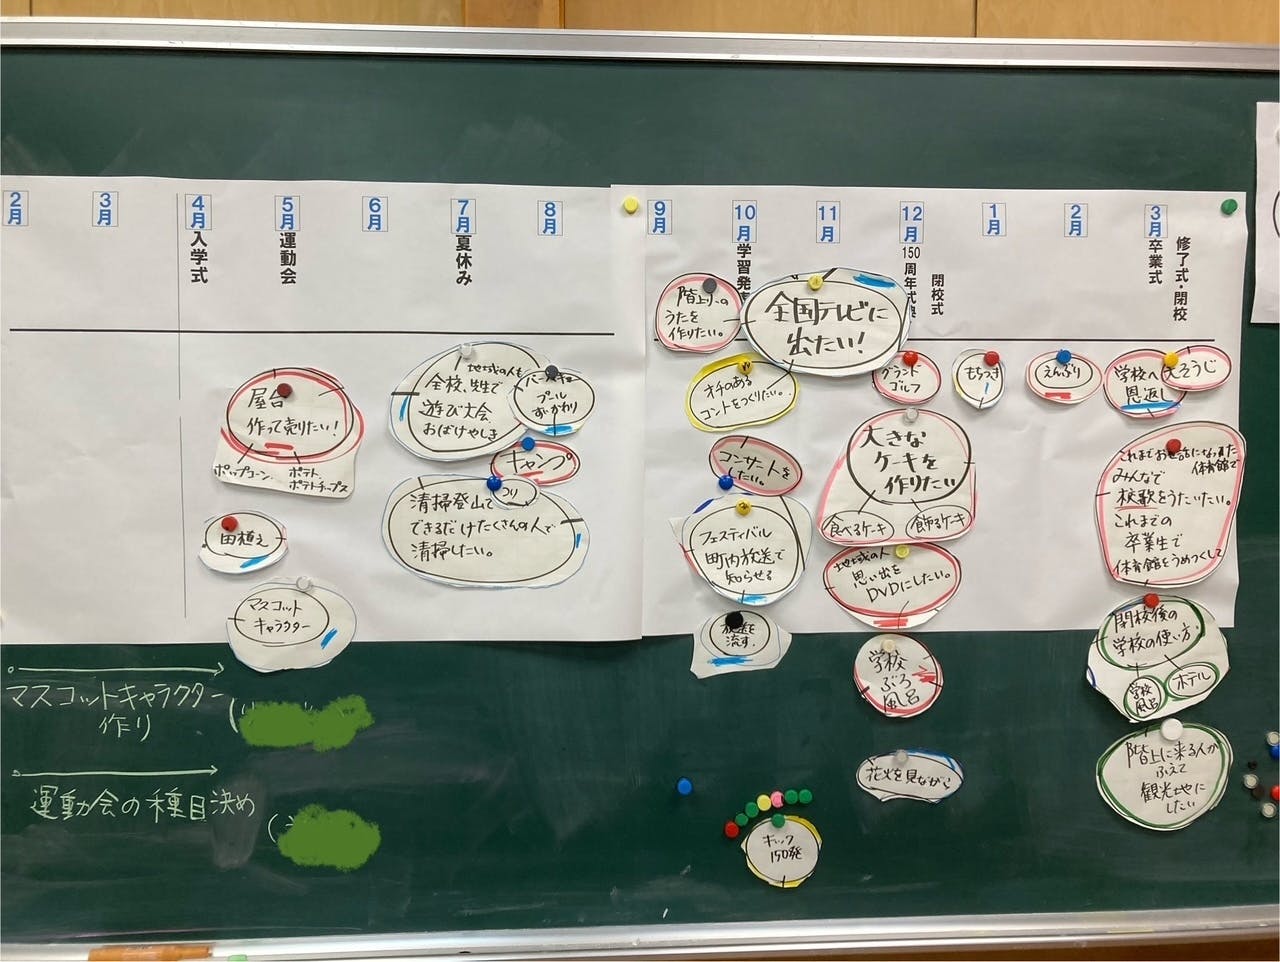 2月
3月
4月
入学式
5月
運動会
6月
7月
夏休み
8月
9月
10月
学習発
11月
12月
150
周年式典
閉校式
1月
2月
3月
卒業式
修了式・閉校
屋台
作って売りたい!
ポップコーン
ポテト
ポテトチップス
田植え
マスコット
キャラクター
地域の人も
全校、先生で
遊び大会
おばけやしき
バーベキュー
プール
すいかわり
キャンプ
清掃登山で
つり
できるだけたくさんの人で
清掃したい。
階上小の
うたを
作りたい。
全国テレビに
出たい!
オチのある
コントをつくりたい。
コンサートを
したい。
フェスティバル
町内放送で
知らせる
放送を
流す。
キック
150発
グランド
ゴルフ
大きな
ケーキを
作りたい
食べるケーキ
飾るケーキ
地域の人
思い出を
DVDにしたい。
学校
ぶろ
風呂
花火を見ながら
もちつき
えんぶり
学校へ
恩返し
ぞうじ
これまでお世話になった
体育館で
みんなで
校歌をうたいたい。
これまでの
卒業生で
体育館をうめつくして
閉校後の
学校の使い方
学校
風呂
ホテル
階上に来る人が
ふえて
観光地に
したい
マスコットキャラクター
作り
運動会の種目決め